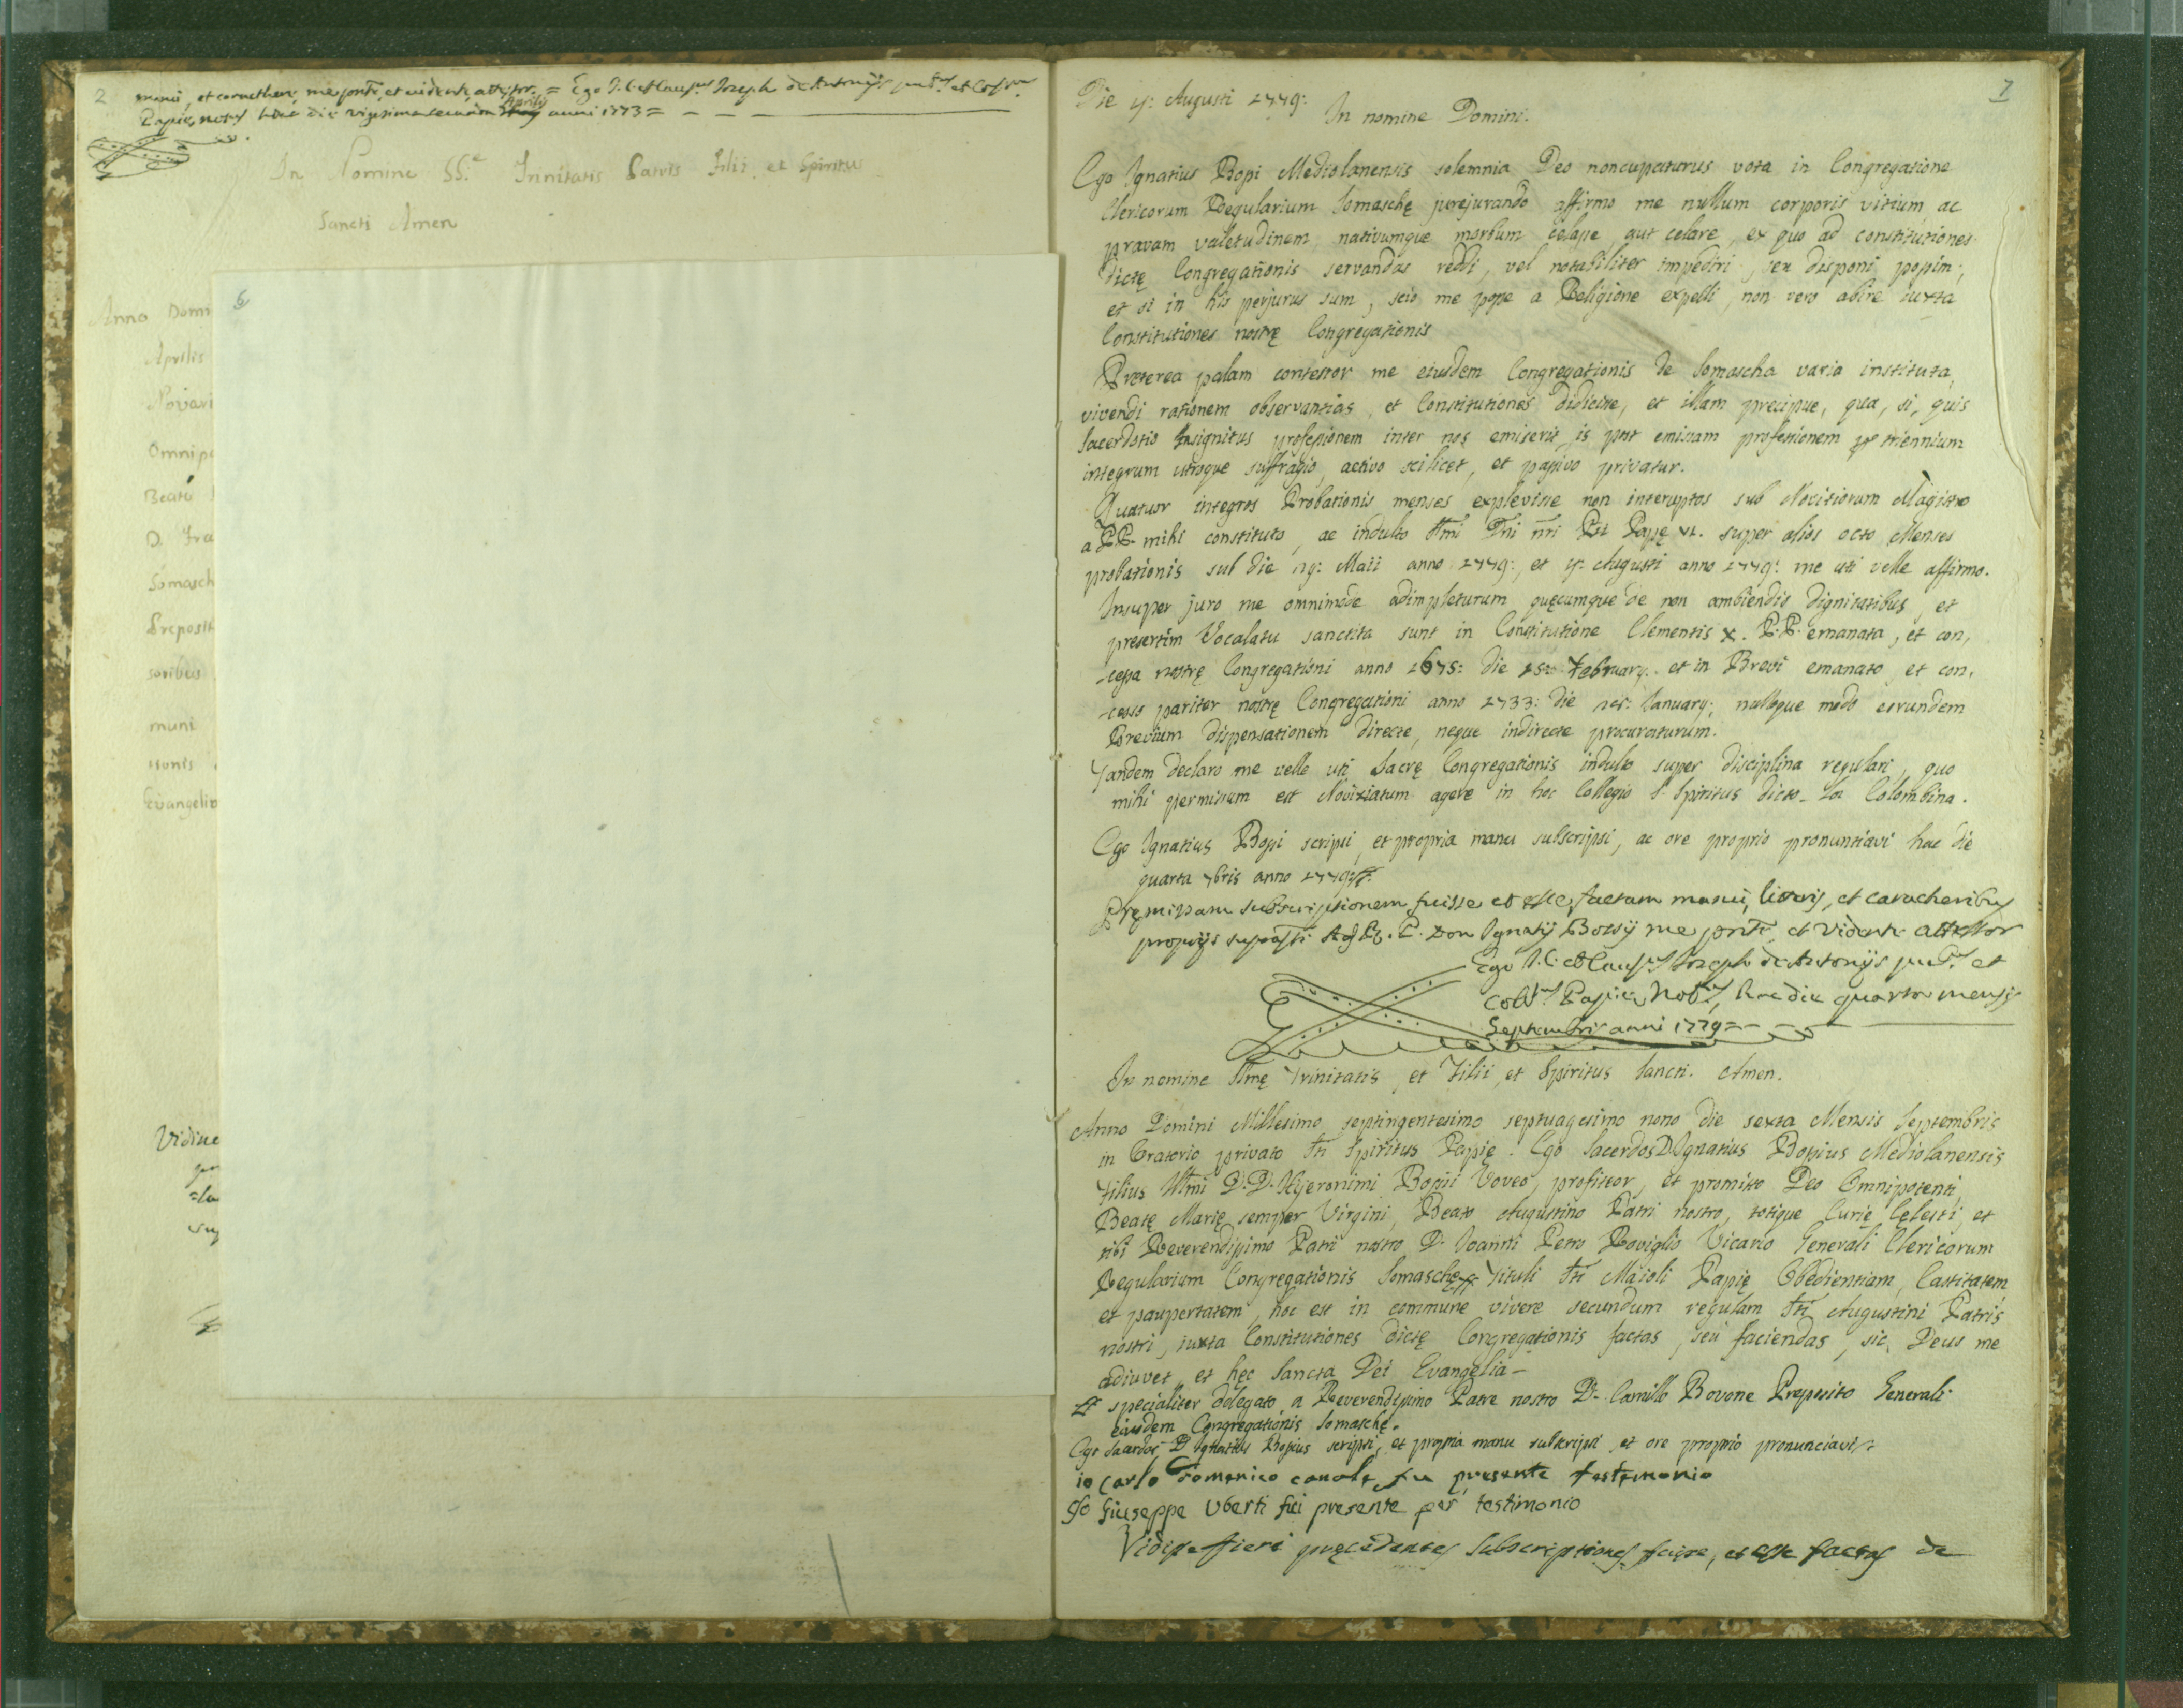 2
manu, et caracthere, me pnte, et vidente, attestor. = Ego J. C. et Causus Joseph de Antonijs
Papie, hac die vigesima secunda Aprilis anni 1773 =
In Nomine SS.e Trinitatis Patris Filii, et Spiritus
Sancti Amen
6
Anno Domi
Aprilis
Novari
Omnip
Beate
D. Fra
Somasch
Preposit
soribus
muni
Evangelia
Vidine
7
Die 4: Augusti 1779:
In nomine Domini.
Ego Ignatius Bossi Mediolanensis solemnia Deo noncupaturus vota in Congregatione
Clericorum Regularium Somaschę jurejurando affirmo me nullum corporis vitium, ac
pravam valetudinem, nativumque morbum celasse, aut celare, ex quo ad constitutiones
dictę Congregationis servandas reddi, vel notabiliter impediri, seu disponi possim;
et si in his perjurus sum, scio me posse a Religione expelli, non vero abire iuxta
Constitutiones nostrę Congregationis
Pręterea palam contestor me eiusdem Congregationis de Somascha varia instituta,
vivendi rationem observantias, et Constitutiones didicisse, et illam precipue, qua, si, quis
Sacerdotio Insignitus professionem inter nos emiserit is post emissam professionem per triennium
integrum utroque suffragio, activo scilicet, et passivo privatur.
Quatuor integros Probationis menses explevisse non interuptos sub Novitiorum Magistro
a PP. mihi constituto, ac indulto SSmi Dni nri Pii Papę VI. super alios octo Menses
probationis sub die 19: Maii anno 1779:, et 4: Augusti anno 1779: me uti velle affirmo.
Insuper juro me omnimode adimpleturum quęcumque de non ambiendis dignitatibus, et
presertim Vocalatu sanctita sunt in Constitutione Clementis X. P.P. emanata, et con,
-cessa nostrę Congregationi anno 1675: die 15: February. et in Brevi emanato, et con,
-cesso pariter nostrę Congregationi anno 1733: die January; nulloque modo eorundem
Brevium dispensationem directe, neque indirecte procuraturum.
Tandem declaro me velle uti Sacrę Congregationis indulto super disciplina regulari, quo
mihi permissum est Novitiatum agere in hoc Collegio S. Spiritus dicto La Colombina.
Ego Ignatius Bossi scripsi, et propria manu subscripsi, ac ore proprio pronuntiavi hac die
quarta 7bris anno 1779
Pręmissam subscriptionem fuisse et esse factam manu, literis, et caracheribus
proprijs suprasti P. Don Ignatij Bossij me pnte, et vidente attestor
Ego J. C. et Causus Joseph de Antonijs pubus et
Collus Papie Notus, hac die quarta mensis
Septembris anni 1779 =
In nomine SSmę Trinitatis, et Filii, et Spiritus Sancti. Amen.
Anno Domini Millesimo septingentesimo septuagesimo nono die sexta Mensis Septembris
in Oratorio privato Sti Spiritus Papię. Ego Sacerdos D. Ignatius Bossius Mediolanensis
Filius Illmi D. D. Hyeronimi Bossii Voveo, profiteor, et promitto Deo Omnipotenti,
Beatę Marię semper Virgini, Beato Augustino Patri nostro, totique Curię Cęlesti, et
tibi Reverendissimo Patri nostro D. Joanni Petro Roviglio Vicario Generali Clericorum
Regularium Congregationis Somaschę Tituli Sti Maioli Papię Obedientiam, Castitatem,
et paupertatem, hoc est in commune vivere secundum regulam Sti Augustini Patris
nostri, iuxta Constitutiones dictę Congregationis factas, seu faciendas, sic Deus me
adiuvet, et hęc Sancta Dei Evangelia -
Et specialiter delegato a Reverendissimo Patre nostro D. Camillo Bovone Preposito Generali
eiusdem Congregationis Somaschę.
Ego Sacerdos D Ignatius Bossius scripsi, et propria manu subscripsi, et ore proprio pronunciavi
io Carlo Domenico canale fu presente testimonio
Io Giuseppe Uberti fui presente per testimonio
Vidisse fieri pręcedentes subscriptiones fuisse, et esse factas de